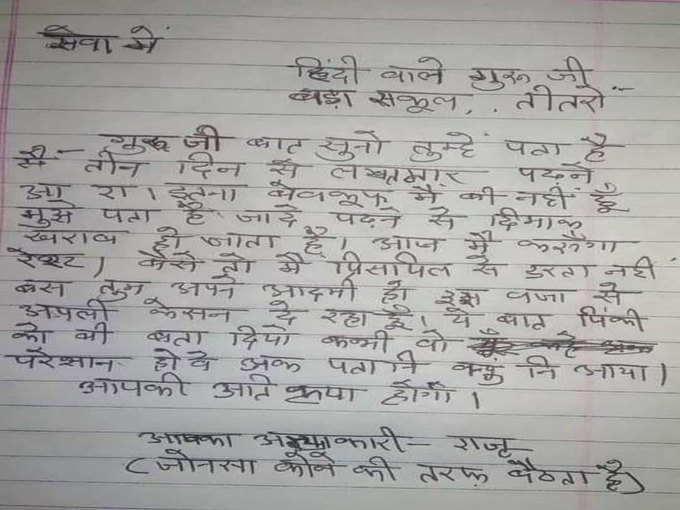 सेवा में
हिंदी वाले गुरू जी
बड़ा सकूल,. तीतरों
गुरू जी बात सुनो तुम्हे पता है
मैं - तीन दिन से लगातमार पढने
आ रा। इतना बेवकूफ मै बी नहीं हूँ
मुझे पता है जादे पढ़ने से दिमाक
खराब हो जाता है। आज मै करूँगा
रेस्ट। वैसे तो मै प्रिंसिपिल से डरता नहीं
बस तुम अपने आदमी हो इस वजा से
अपली केसन दे रहा हूँ। ये बात पिंकी
को बी बता दियो कब्बी वो
परेशान होवे अक पता नि क्यूं नि आया।
आपकी अति क्रपा होगी।
आपका अज्ञाकारी - राजू
(जोनसा कोने की तरफ बैठता है)